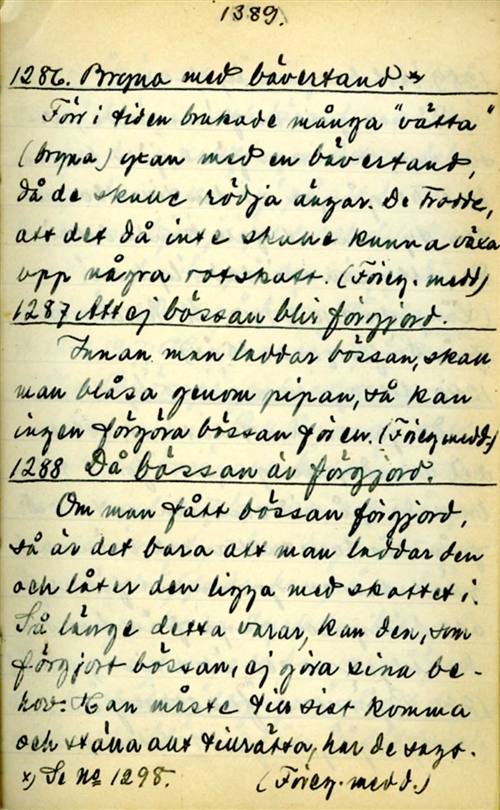 1389.
1286. Bryna med bävertand. x)
Förr i tiden brukade många "vätta"
(bryna) yxan med en bävertand,
då de skulle rödja ängar. De trodde,
att det då inte skulle kunna växa
upp några rotskott. (Föreg. medd)
1287 Att ej bössan blir förgjord.
Innan man laddar bössan, skall
man blåsa genom pipan, så kan
ingen förgöra bössan för en. (Föreg medd.)
1288 Då bössan är förgjord.
Om man fått bössan förgjord,
så är det bara att man laddar den
och låter den ligga med skottet i.
Så länge detta varar, kan den, som
förgjort bössan, ej göra sina be-
hov. Han måste till sist komma
och ställa allt tillrätta, har de sagt.
x) Se No 1298. (Föreg. medd.)